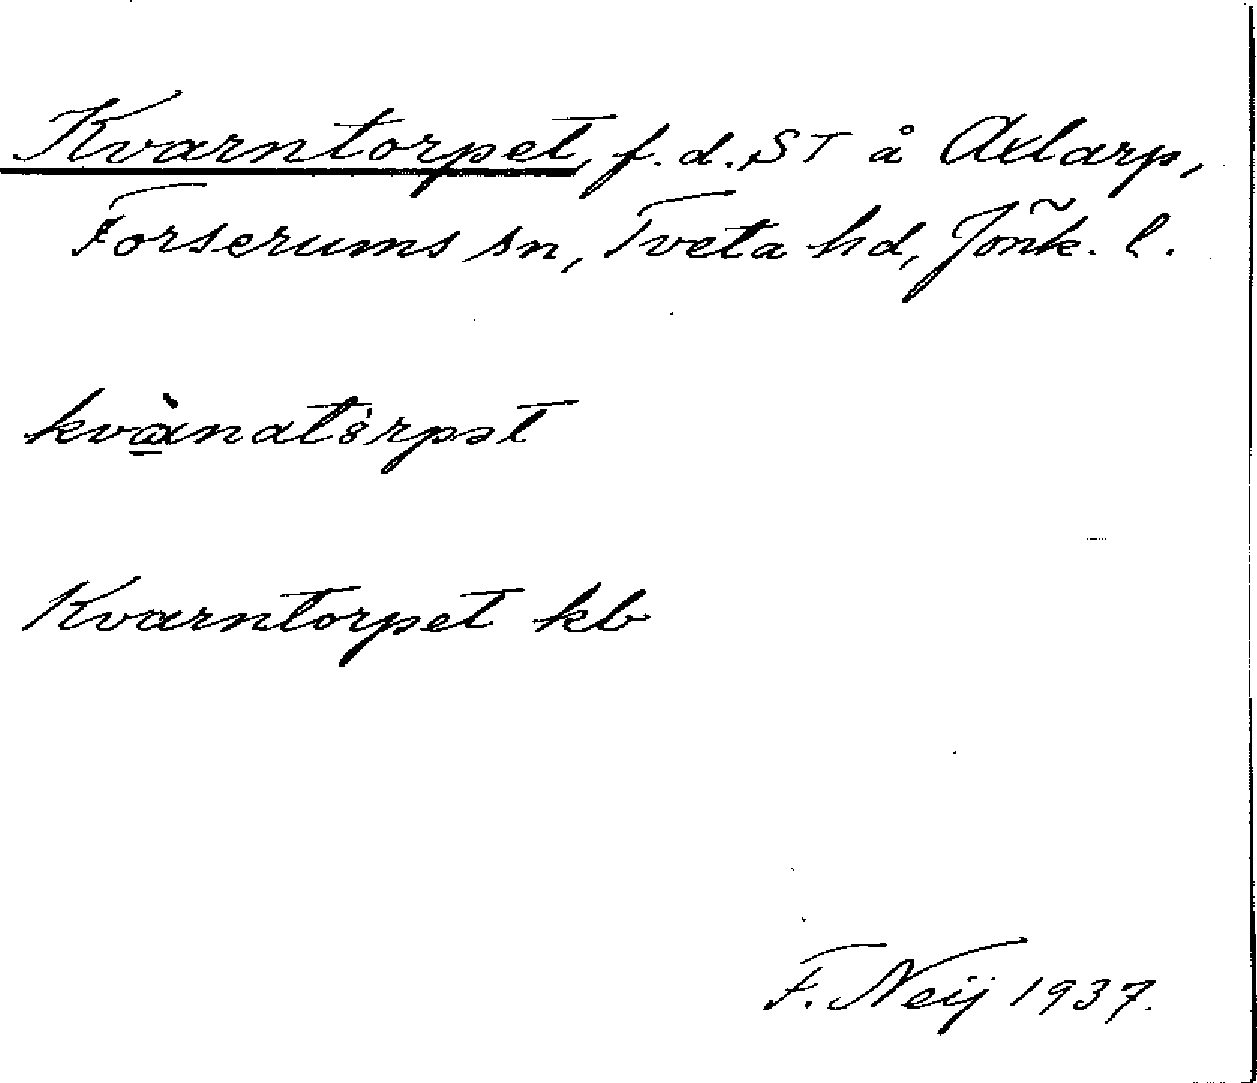 Kvarntorpet, f. d. ST å Axlarp,
Forserums sn, Tveta hd, Jönk. l.
kvànatòrpət
Kvarntorpet kb
F. Neij 1937.